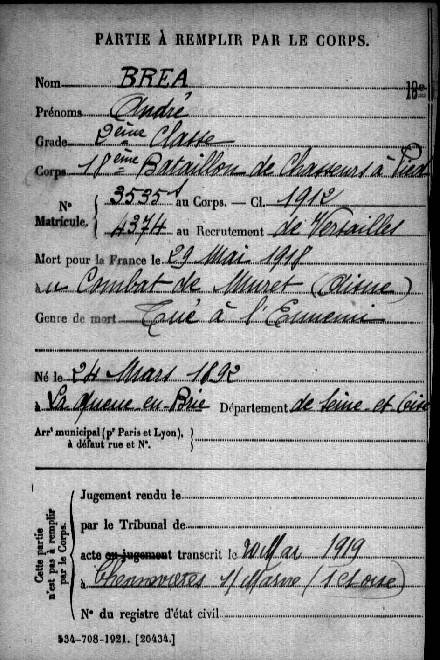 PARTIE À REMPLIR PAR LE CORPS.
Nom BREA
Prénoms André
Grade 2ème Classe
Corps 18ème Bataillon de Chasseurs à Pied
N° Matricule. { 3535 au Corps. — Cl. 1912
4374 au Recrutement de Versailles
Mort pour la France le 29 Mai 1918
à u Combat de Muret (Aisne)
Genre de mort Tué à l'Ennemi
Né le 24 Mars 1892
à La Queue en Brie Département de Seine et Oise
Arrt municipal (pr Paris et Lyon), à défaut rue et N°. }
Cette partie n'est pas à remplir par le Corps. {
Jugement rendu le
par le Tribunal de
acte ou jugement transcrit le 20 Mai 1919
à Chennevières s/Marne (Set Oise)
N° du registre d'état civil
534-708-1921. [20434.]